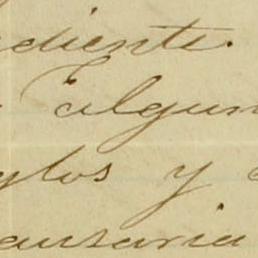 diente.
algun
glos y
ausaria